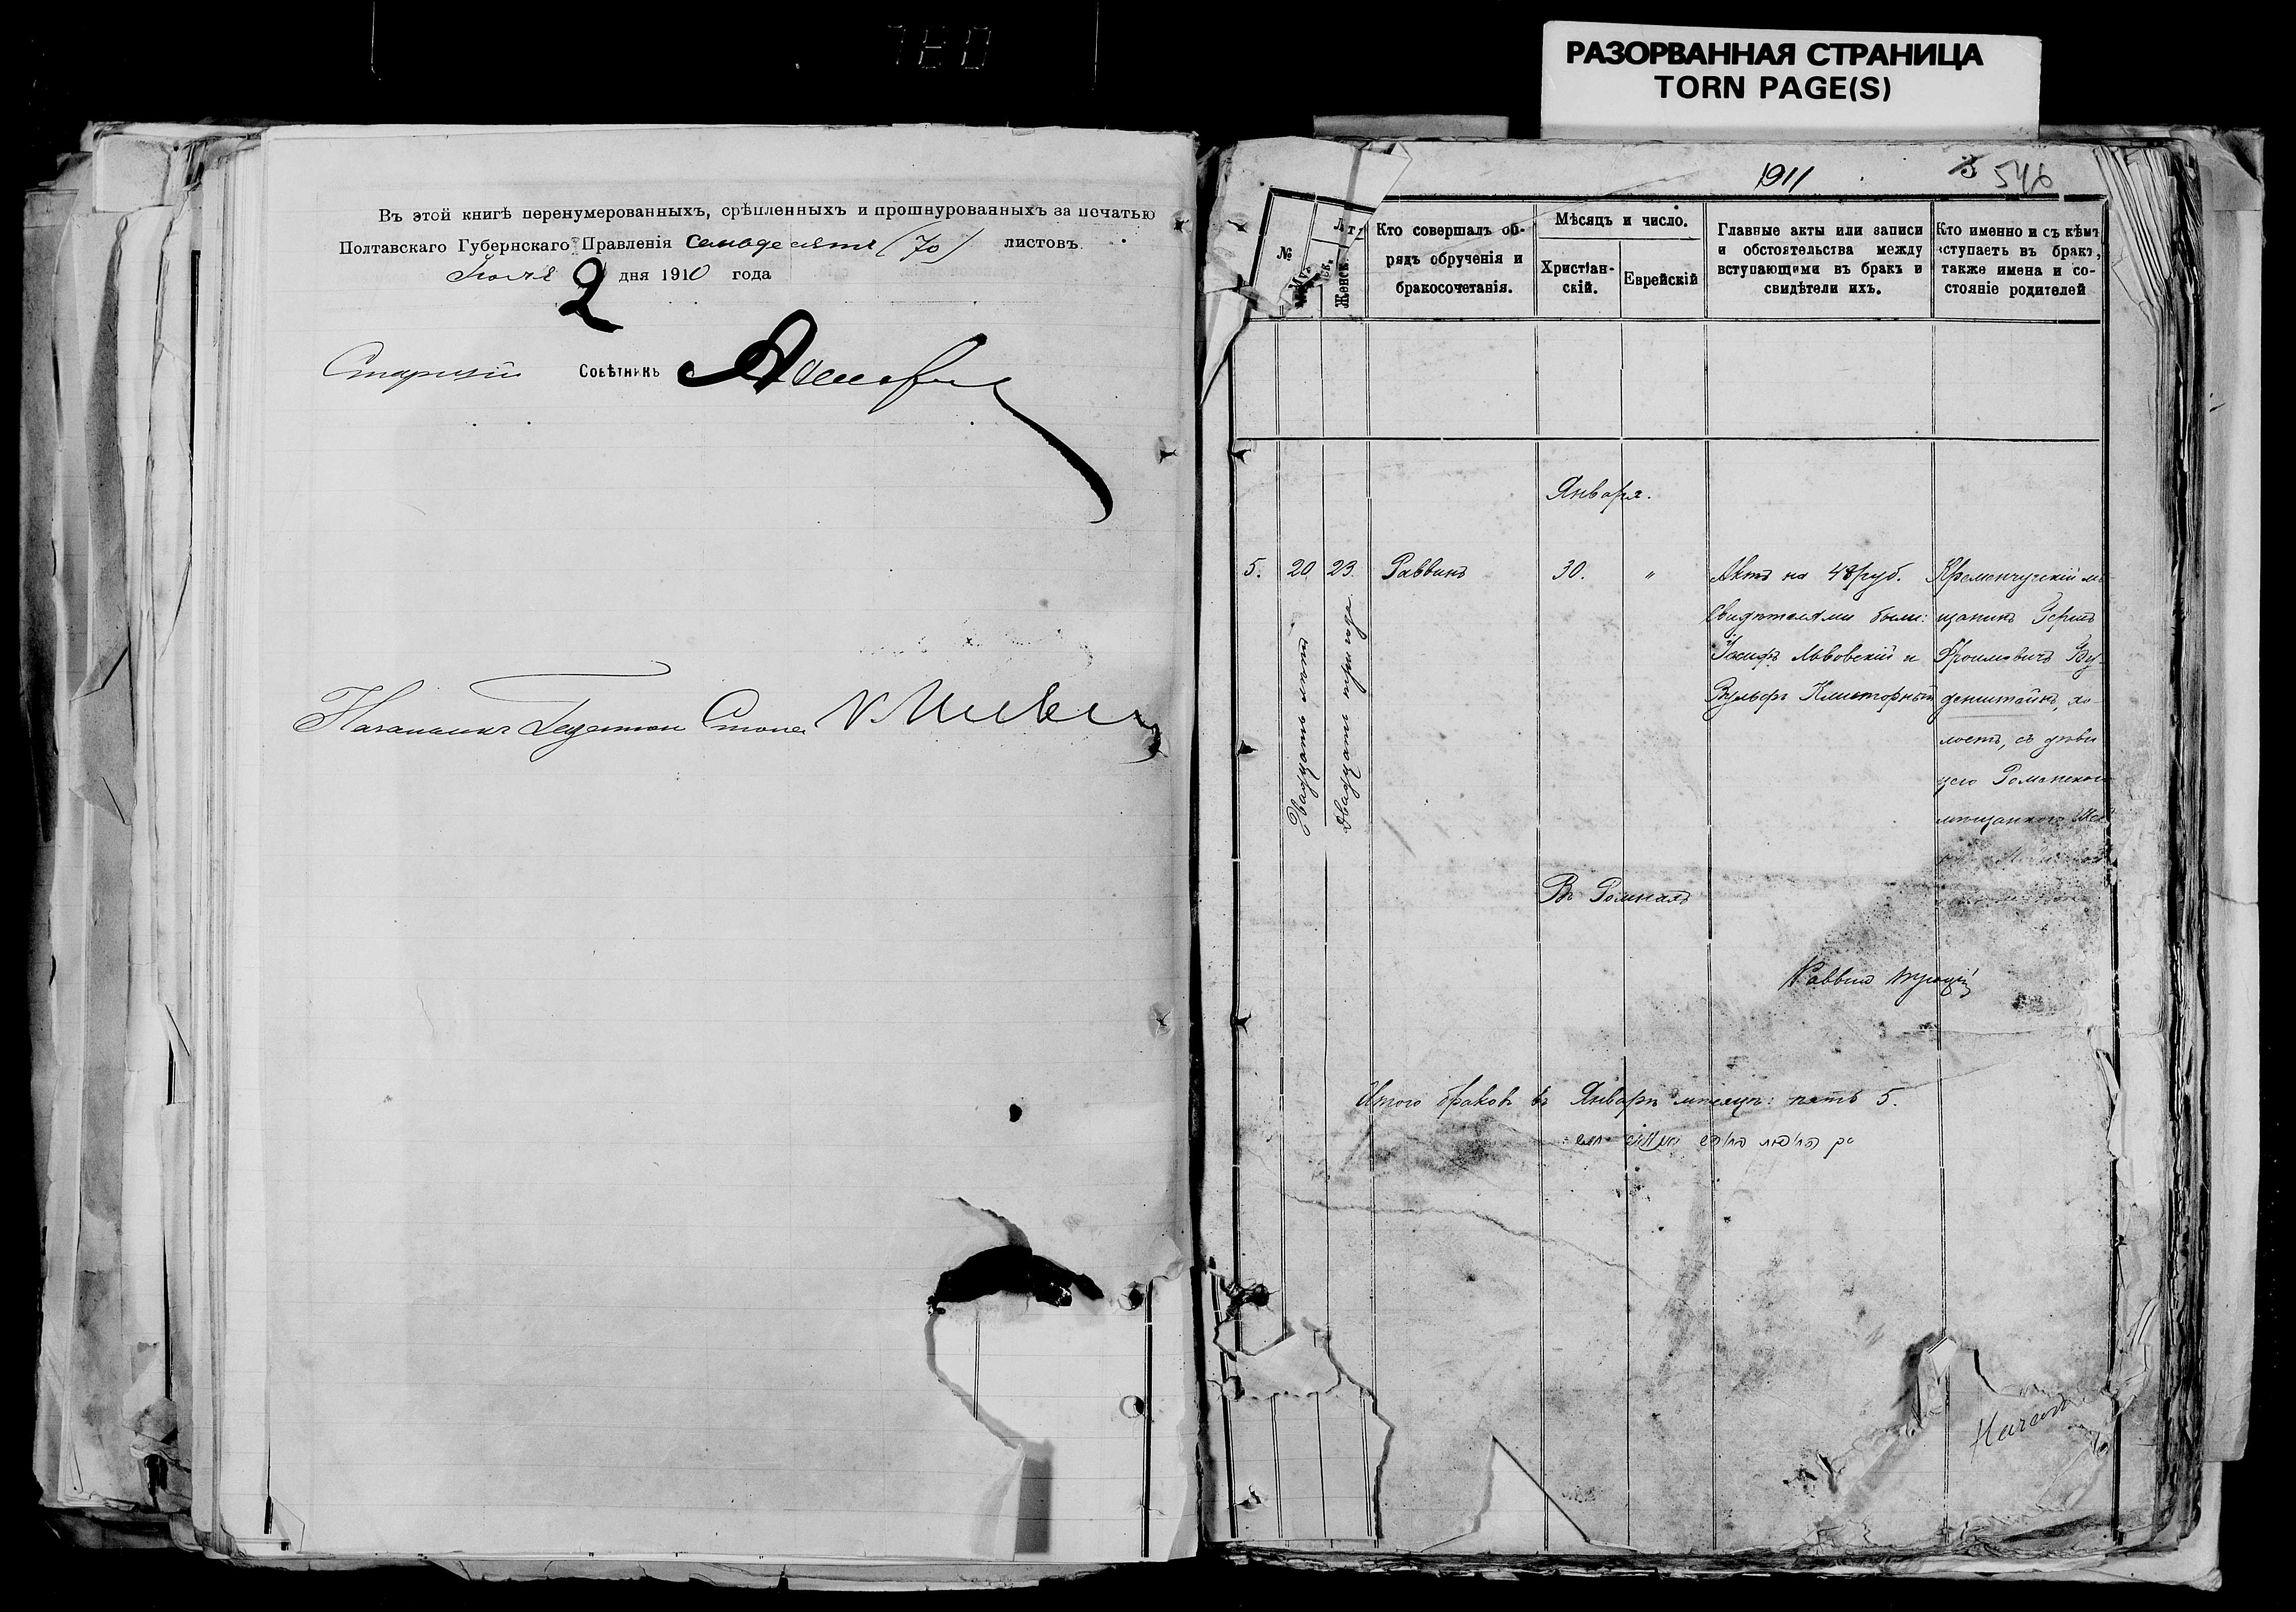 РАЗОРВАННАЯ СТРАНИЦА
TORN PAGE(S)
Въ этой книгѣ перенумерованныхъ, срѣпленныхъ и прошнурованныхъ за печатью
Полтавскаго Губернскаго Правленія семьдесятъ (70) листовъ.
Іюля 2 дня 1910 года
Старшій Совѣтникъ
1911
546
№
Лѣт
Муж
Женск.
Кто совершалъ об-
рядъ обрученія и
бракосочетанія.
Мѣсяцъ и число.
Христіан-
скій.
Еврейскій
Главные акты или записи
и обстоятельства между
вступающими въ бракъ и
свидѣтели ихъ.
Кто именно и съ кѣмъ
вступаетъ въ бракъ,
также имена и со-
стояніе родителей
Января.
5.
20
Двадцать лѣтъ
23.
Двадцать три года.
Раввинъ
30.
"
Актъ на 48 руб.
Свидѣтелями были:
Іосифъ Львовскій и
Вульфъ Клисторный
Кременчугскій мѣ-
щанинъ Гершъ
Фроимовичъ Бу-
денштейнъ, хо-
лостъ, съ дѣви
цею Роменскою
мѣщанкою
Въ Ромнахъ
Раввинъ
Итого браковъ въ Январѣ мѣсяцѣ: пять 5.